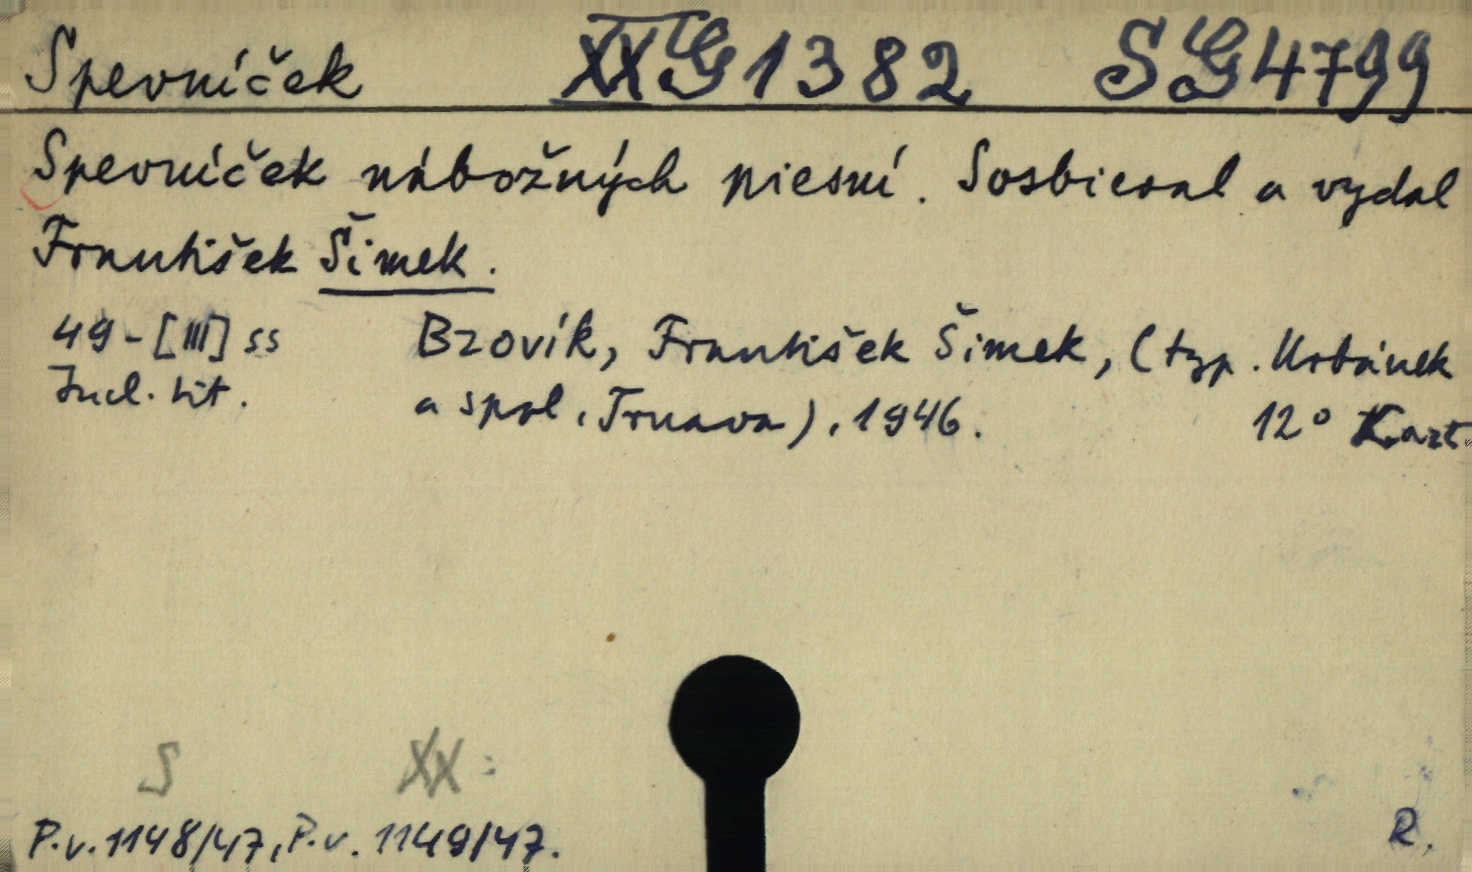 Spevníček XX G 1382 SG 4799
Spevníček nábožných piesní. Sosbieral a vydal
František Šimek.
49-[III] ss Bzovík, František Šimek, (typ. Urbánek
Incl. tit. a spol., Trnava), 1946. 12° Kart.
S XX:
P.v. 1148/47, P.v. 1149/47. R.